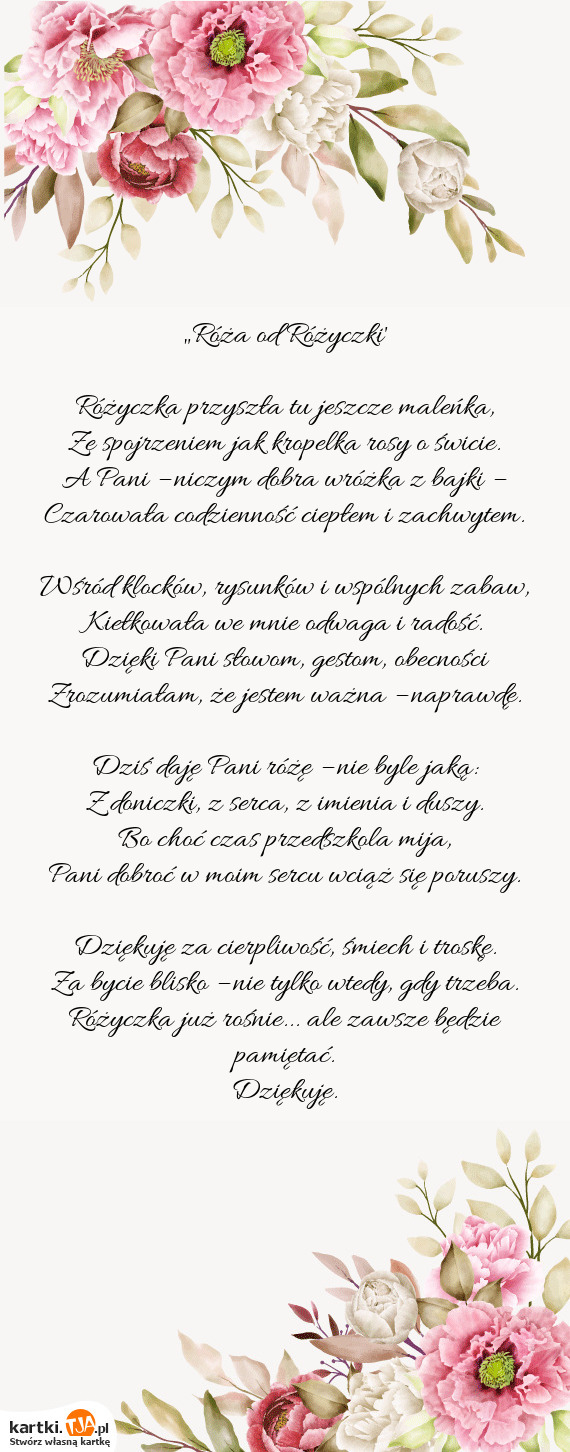 „Róża od Różyczki'
Różyczka przyszła tu jeszcze maleńka,
Ze spojrzeniem jak kropelka rosy o świcie.
A Pani –niczym dobra wróżka z bajki –
Czarowała codzienność ciepłem i zachwytem.
Wśród klocków, rysunków i wspólnych zabaw,
Kiełkowała we mnie odwaga i radość.
Dzięki Pani słowom, gestom, obecności
Zrozumiałam, że jestem ważna –naprawdę.
Dziś daję Pani różę –nie byle jaką:
Z doniczki, z serca, z imienia i duszy.
Bo choć czas przedszkola mija,
Pani dobroć w moim sercu wciąż się poruszy.
Dziękuję za cierpliwość, śmiech i troskę.
Za bycie blisko –nie tylko wtedy, gdy trzeba.
Różyczka już rośnie... ale zawsze będzie
pamiętać.
Dziękuję.
kartki.TJA.pl
Stwórz własną kartkę